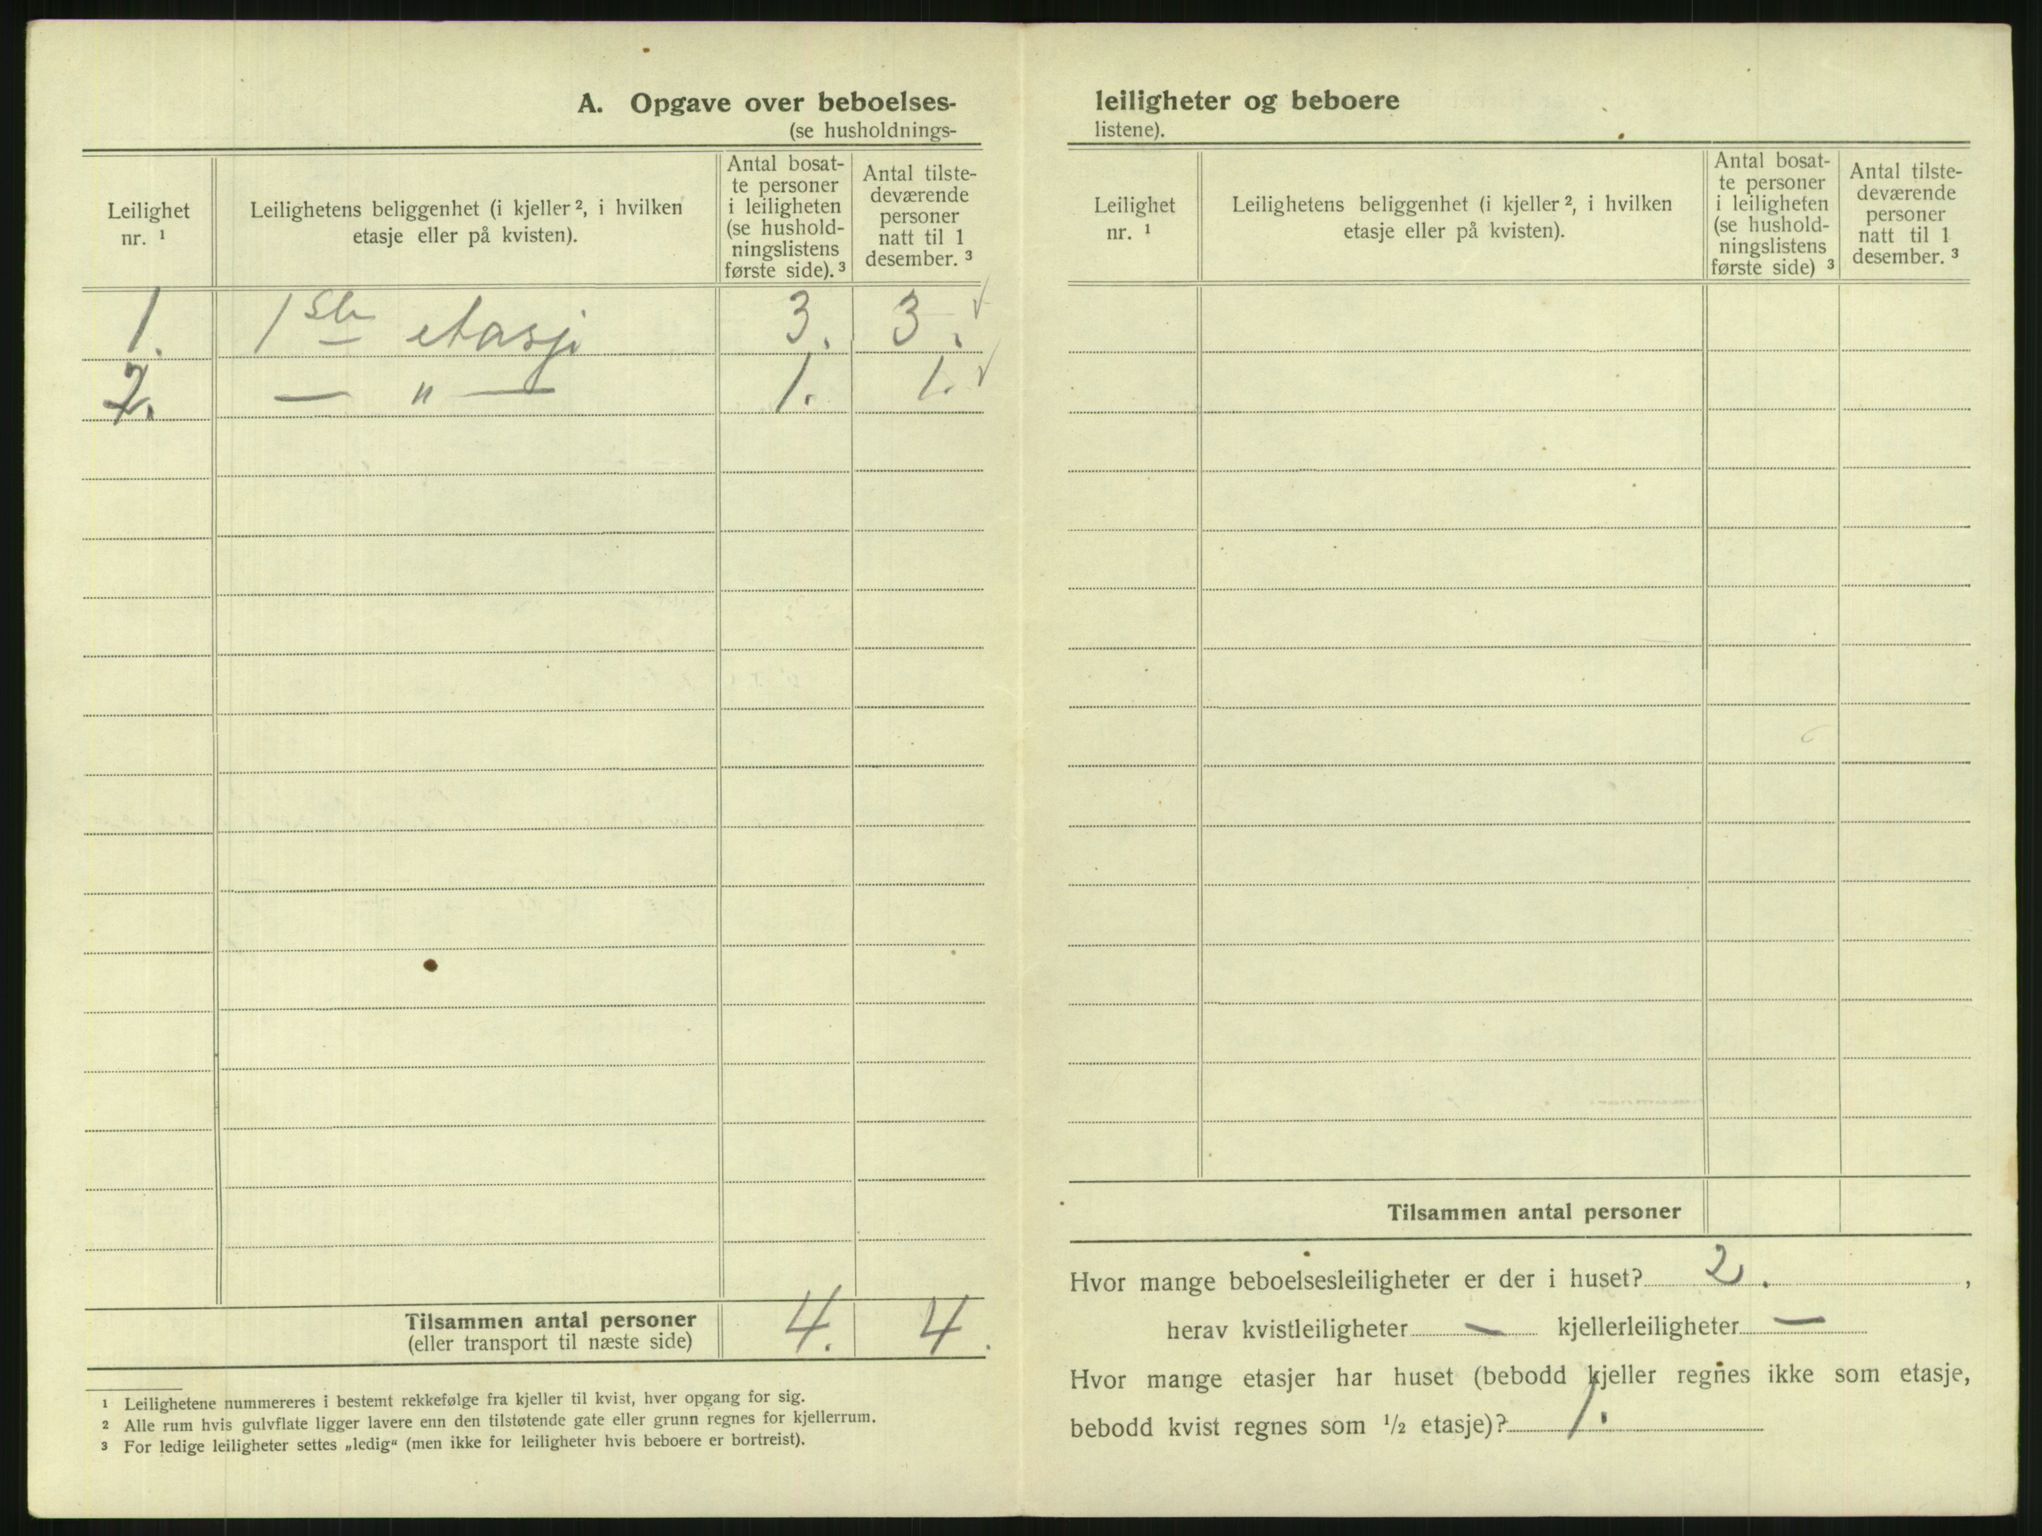 A. Opgave over beboelses-
(se husholdnings-
Leilighet
nr. ¹
Leilighetens beliggenhet (i kjeller ², i hvilken
etasje eller på kvisten).
Antal bosat-
te personer
i leiligheten
(se hushold-
ningslistens
første side). ³
Antal tilste-
deværende
personer
natt til 1
desember. ³
1. 1ste etasje 3. 3.
2. — " — 1. 1.
Tilsammen antal personer 4. 4.
(eller transport til næste side)
¹ Leilighetene nummereres i bestemt rekkefølge fra kjeller til kvist, hver opgang for sig.
² Alle rum hvis gulvflate ligger lavere enn den tilstøtende gate eller grunn regnes for kjellerrum.
³ For ledige leiligheter settes „ledig“ (men ikke for leiligheter hvis beboere er bortreist).
leiligheter og beboere
listene).
Leilighet
nr. ¹
Leilighetens beliggenhet (i kjeller ², i hvilken
etasje eller på kvisten).
Antal bosat-
te personer
i leiligheten
(se hushold-
ningslistens
første side) ³
Antal tilste-
deværende
personer
natt til 1
desember. ³
Tilsammen antal personer
Hvor mange beboelsesleiligheter er der i huset? 2. ,
herav kvistleiligheter — kjellerleiligheter —
Hvor mange etasjer har huset (bebodd kjeller regnes ikke som etasje,
bebodd kvist regnes som ½ etasje)? 1.